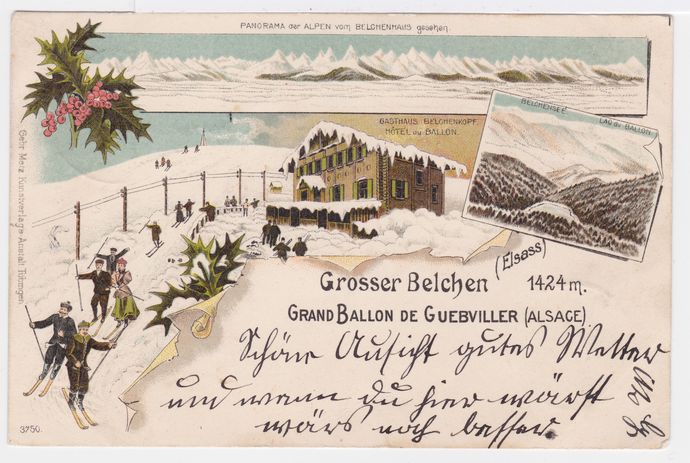 PANORAMA der ALPEN vom BELCHENHAUS gesehen.
GASTHAUS BELCHENKOPF.
HÔTEL du BALLON.
BELCHENSEE
LAC du BALLON.
Gebr. Metz Kunstverlags-Anstalt Tübingen
Grosser Belchen (Elsass) 1424 m.
GRAND BALLON DE GUEBVILLER (ALSACE)
Schöne Aussicht gutes Wetter
und wenn du hier wärst
wärs noch besser.
3750.